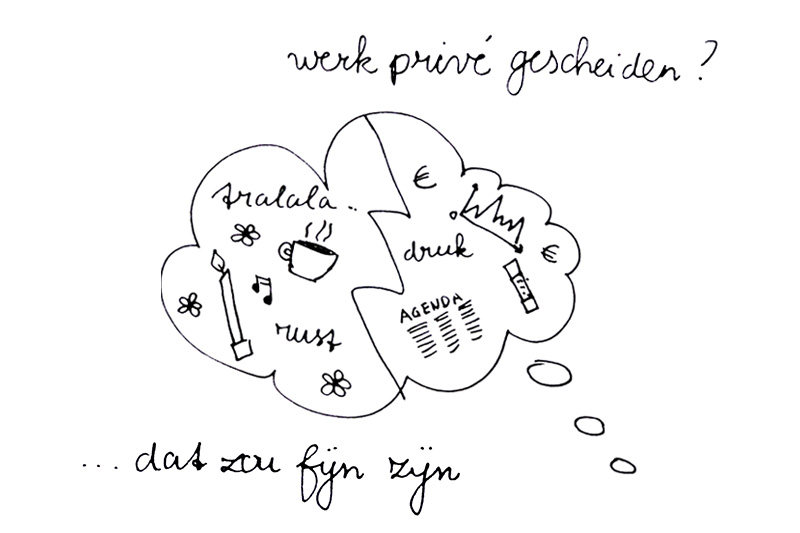 werk privé gescheiden?
tralala..
€
druk
€
AGENDA
rust
... dat zou fijn zijn